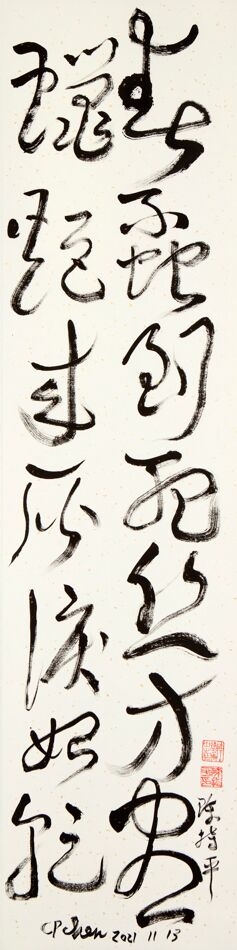 春蚕到死丝方尽
蠟炬成灰淚始乾
陈持平
CP Shen 2021 11 13